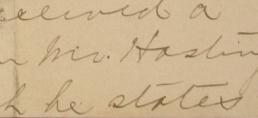 eceived a
Mr. Hastin
h he states